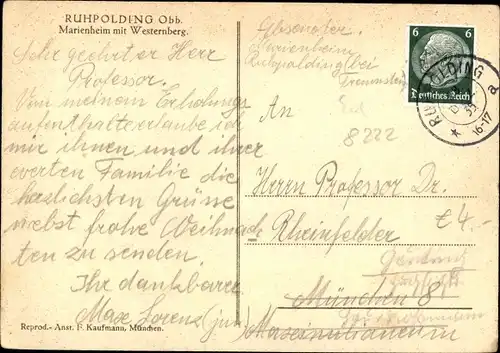 RUHPOLDING Obb.
Marienheim mit Westernberg.
Sehr geehrter Herr
Professor.
Von meinem Erholungs
aufenthalte erlaube ich
mir ihnen und ihrer
werten Familie die
herzlichsten Grüsse
nebst frohe Weihnach
ten zu senden.
Ihr dankbarer
Max Lorenz (jun)
Reprod.-Anst. F. Kaufmann, München.
Absender.
Marienheim
Ruhpolding bei
Traunstein
6 6
Deutches Reich
RUHPOLDING
16-17
a
An
8222
Herrn Professor Dr.
€ 4.-
Rheinfelder
München 8
Maximilianeum